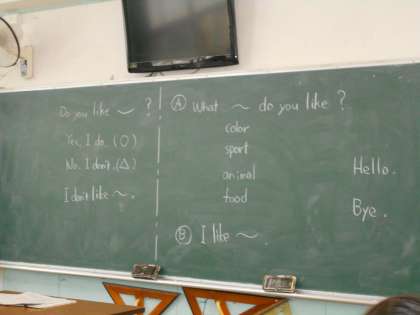 Do you like ~ ?
Yes, I do. (○)
No. I don't. (△)
I don't like ~.
Ⓐ What ~ do you like ?
color
sport
animal
food
Ⓑ I like ~.
Hello.
Bye.